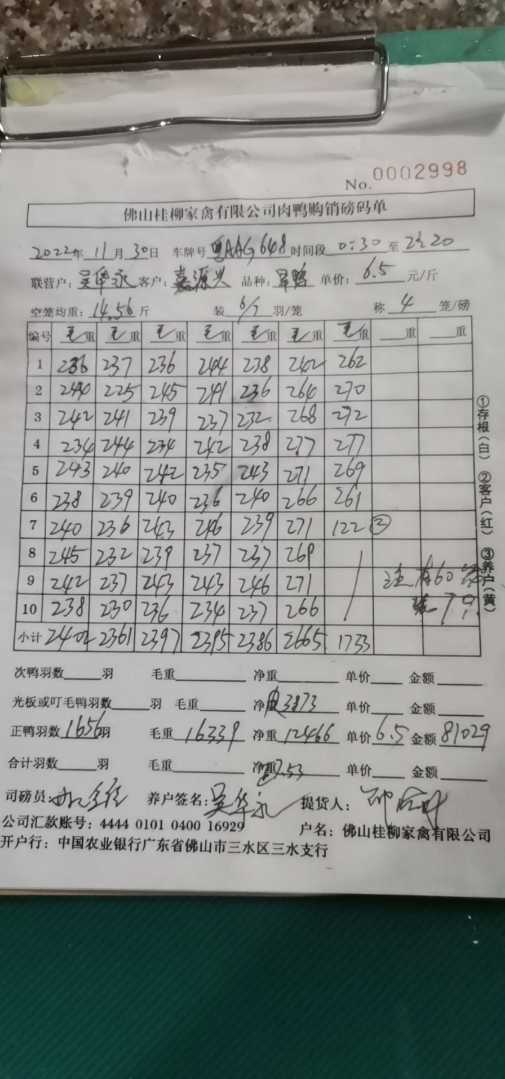 No. 0002998
佛山桂柳家禽有限公司肉鸭购销磅码单
2022年 11月 30日 车牌号 粤AAG648 时间段 0:30 至 2:20
联营户: 吴华永 客户: 嘉源兴 品种: 单价: 6.5 元/斤
空笼均重: 14.56 斤 装 6/7 羽/笼 称 4 笼/磅
编号 毛重 毛重 毛重 毛重 毛重 毛重 毛重 重 重
1 236 237 236 244 238 242 262
2 240 225 245 241 236 264 270
3 242 241 239 237 232 268 272
4 234 244 234 242 238 277 277
5 243 240 242 235 243 271 269
6 238 239 240 236 240 266 261
7 240 236 243 246 239 271 122 ②
8 245 232 239 237 237 269
9 242 237 243 243 246 271 注 有60笼
10 238 230 236 234 237 266 装7只
小计 2402 2361 2397 2395 2386 2665 1733
①存根(白) ②客户(红) ③养户(黄)
次鸭羽数 羽 毛重 净重 单价 金额
光板或叮毛鸭羽数 羽 毛重 净皮3873 单价 金额
正鸭羽数 1656羽 毛重 16339 净重 12466 单价 6.5 金额 81029
合计羽数 羽 毛重 净重 7.53 单价 金额
司磅员: 养户签名: 吴华永 提货人:
公司汇款账号: 4444 0101 0400 16929 户名: 佛山桂柳家禽有限公司
开户行: 中国农业银行广东省佛山市三水区三水支行